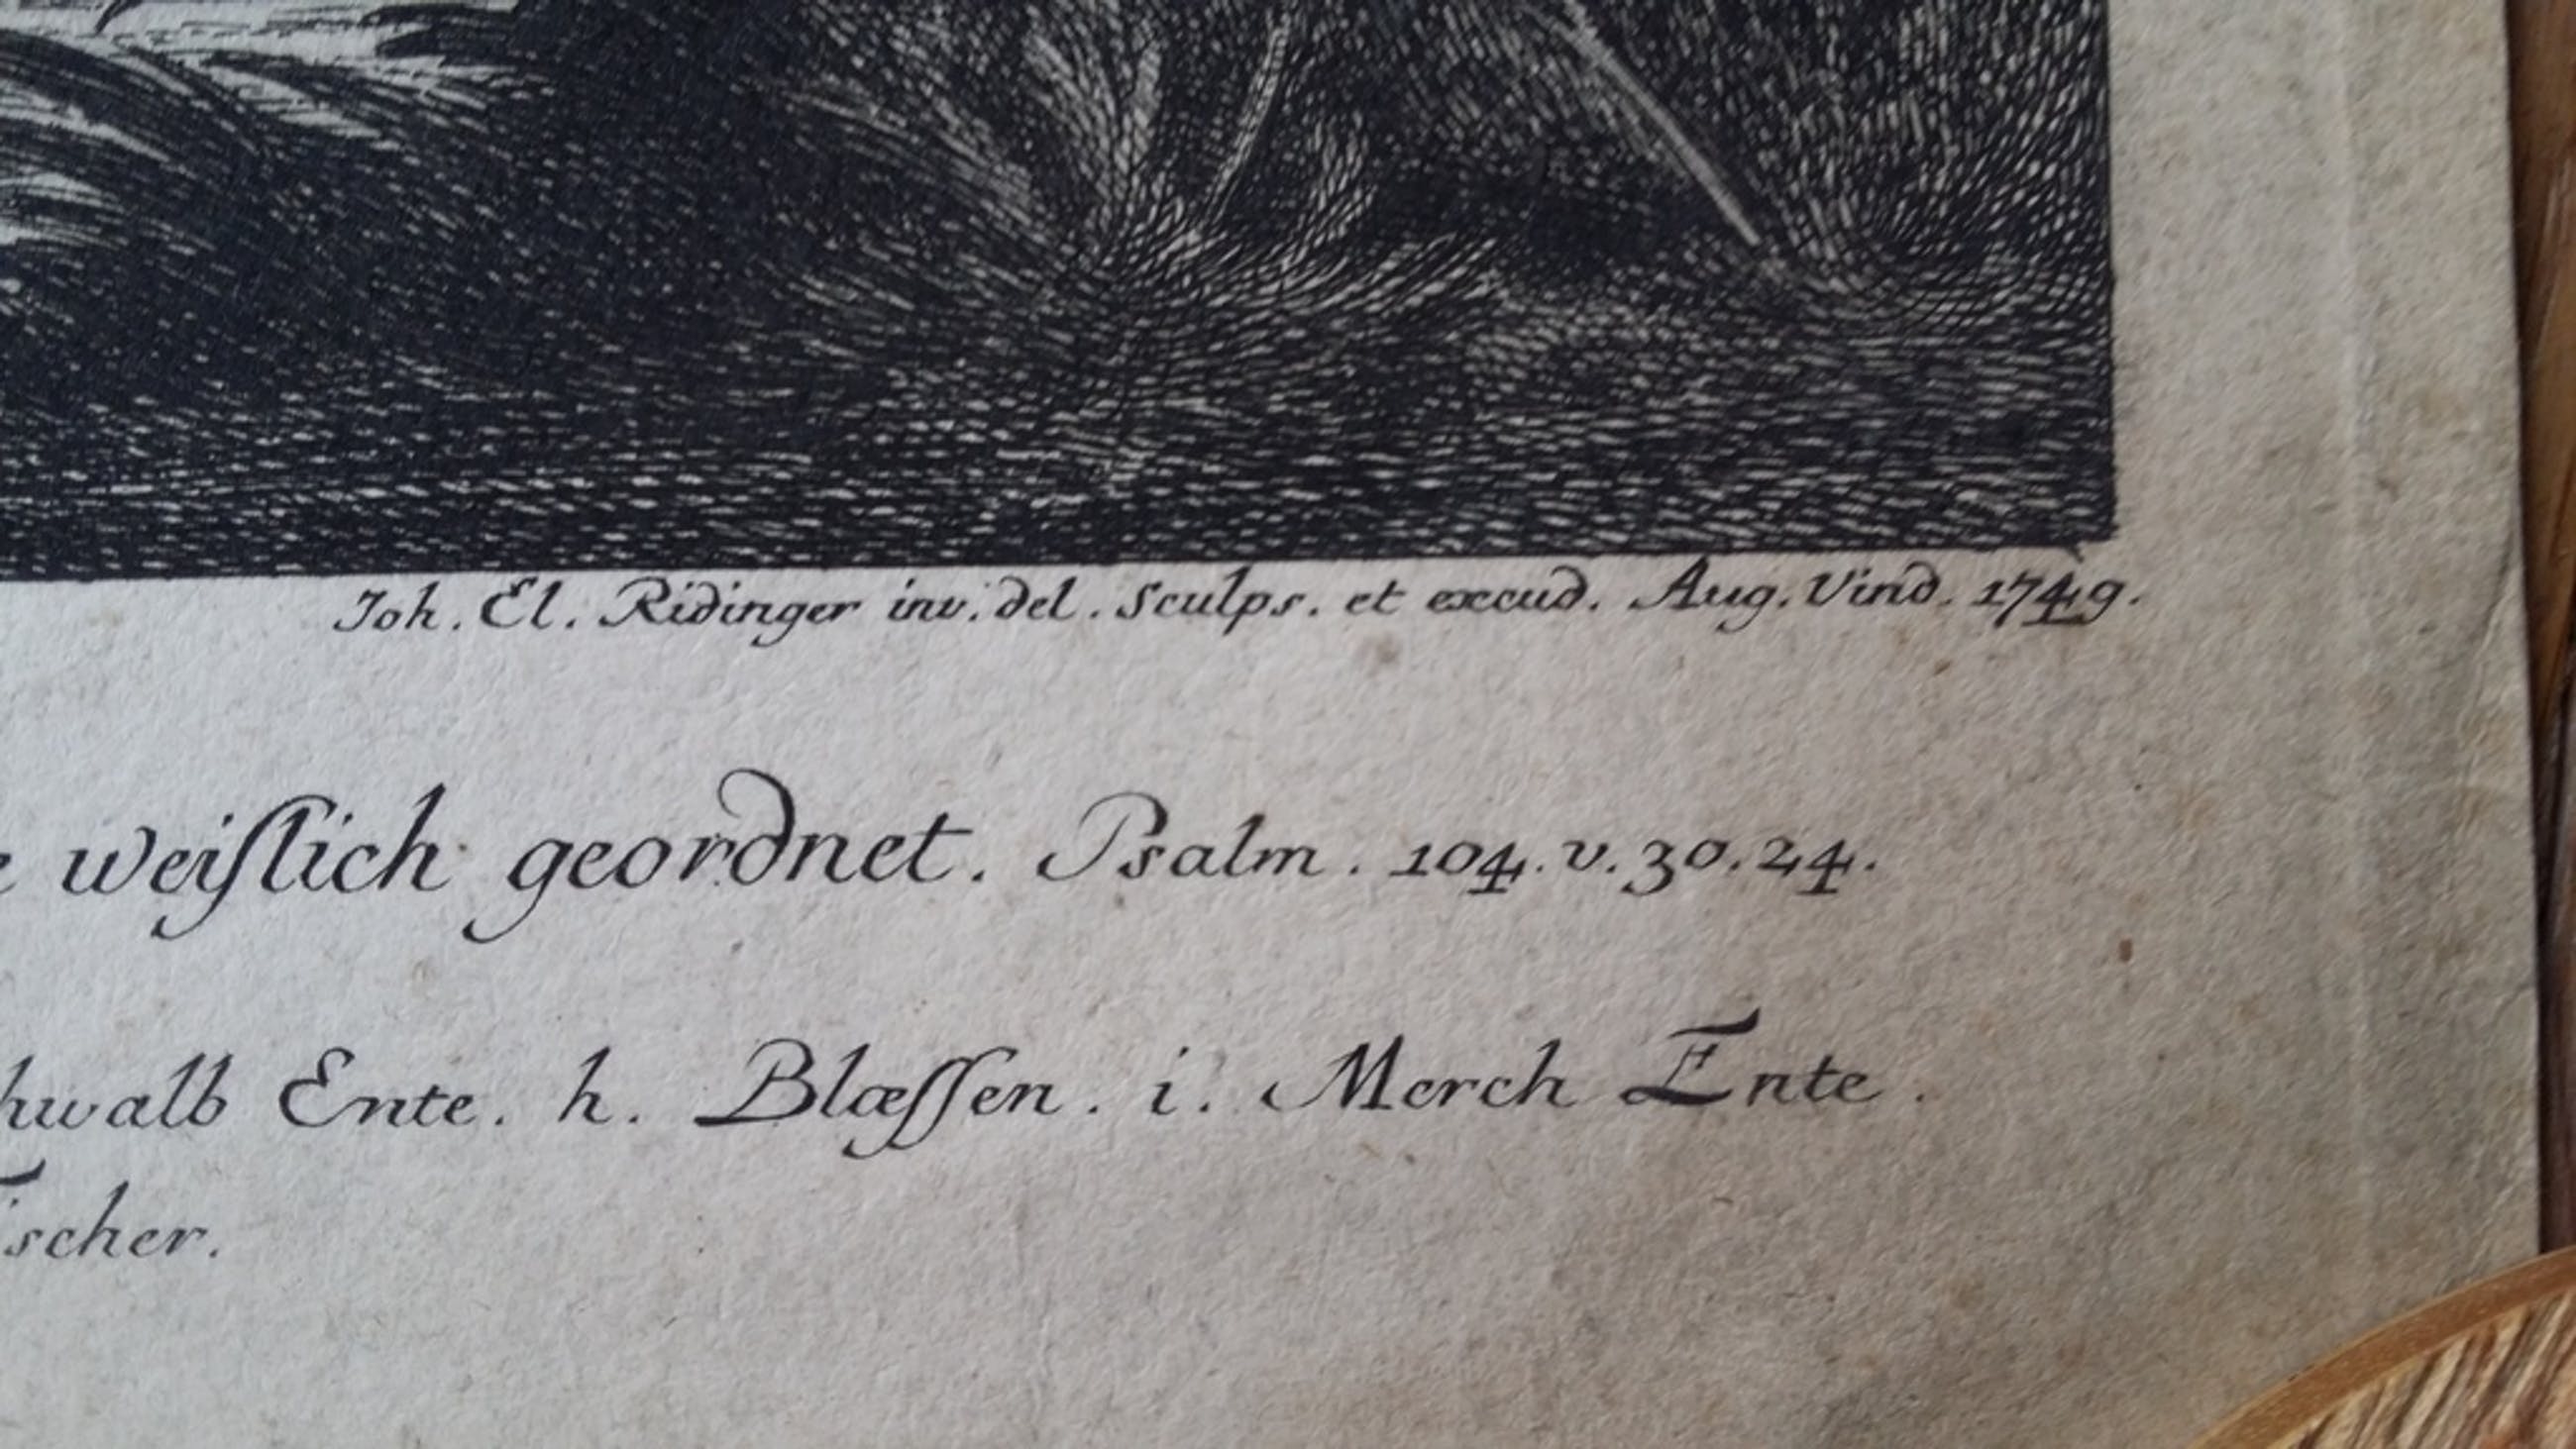 Joh. El. Ridinger inv. del. Sculps. et excud. Aug. Vind. 1749.
weiſlich geordnet. Psalm. 104. v. 30. 24.
Ente. h. Blæſſen. i. Merch Ente.